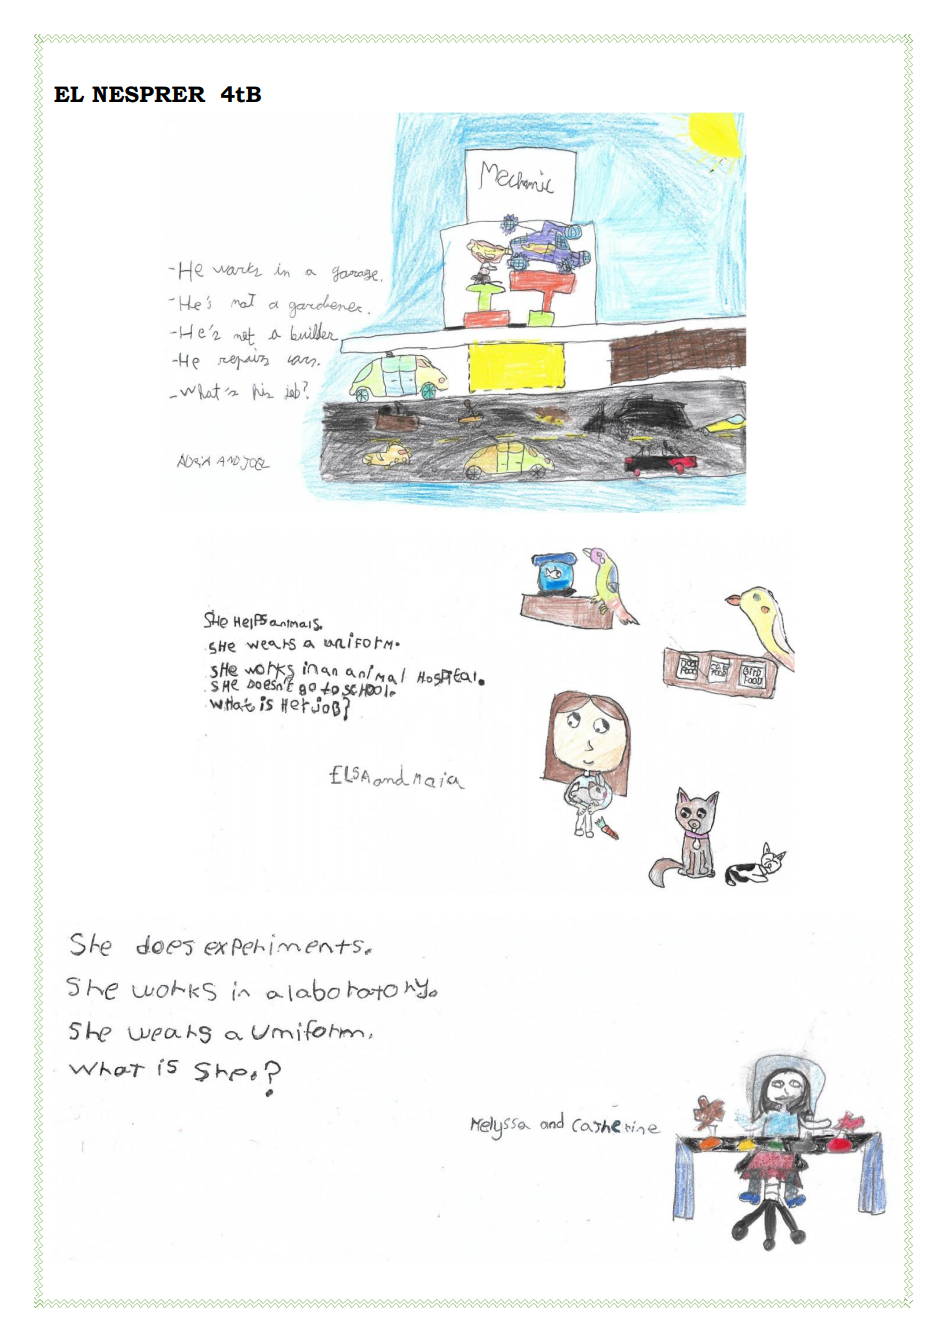 EL NESPRER 4tB
Mechanic
-He works in a garage.
-He's not a gardener.
-He's not a builder
-He repairs cars.
-What's his job?
ADRIA AND JOEL
SHe HelPs animals.
SHe weArs a uniform.
SHe works in an animal HosPital.
SHe Doesn't go to scHool.
WHat is Her joB?
DOG FOOD
CAT FOOD
BIRD FOOD
ELSA and Maia
She does experiments.
She works in a laboratory.
She wears a Umiform.
What is She.?
Melyssa and Catherine